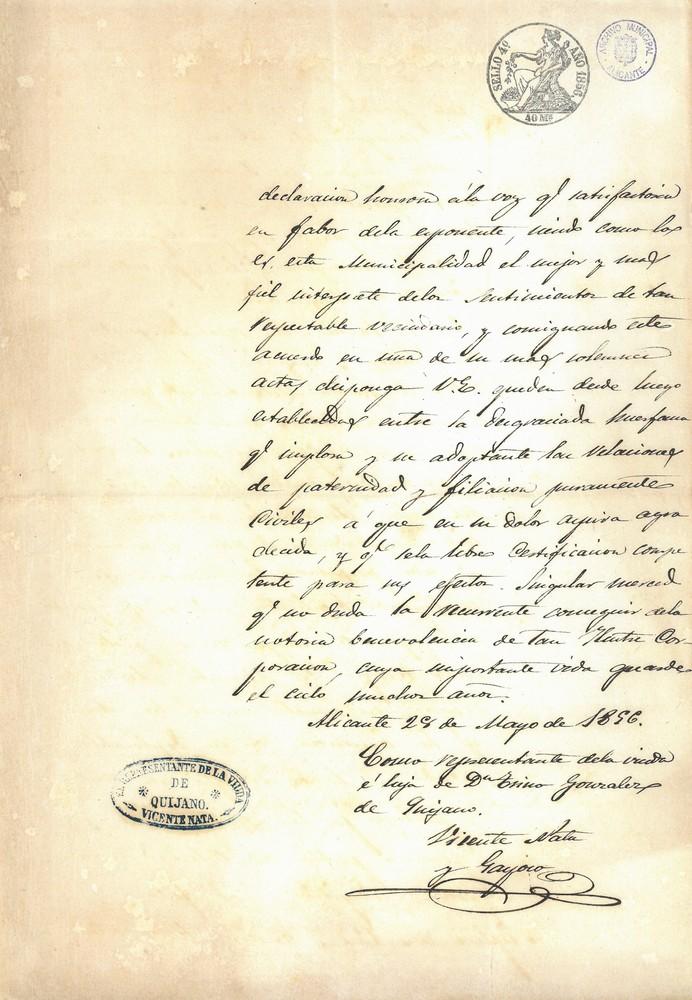 SELLO 4º AÑO 1856
40 Ms.
ARCHIVO MUNICIPAL
ALICANTE
declaracion honrosa á la voz qe satisfactoria
en fabor dela esponente, siendo como lo es
es. esta Municipalidad el mejor y mas
fiel interprete delos sentimientos de tan
respetable vecindario, y consignando este
acuerdo en una de su mas solemnes
actas disponga V.E. queden desde luego
establecidas entre la desgraciada huerfana
qe implora y su adoptante las relaciones
de paternidad y filiacion puramente
Civiles á que en su dolor aspira agra
decida, y qe sela libre Certificacion compe
tente para sus efectos. Singular merced
qe no duda la recurrente conseguir dela
notoria benevolencia de tan Ilustre Cor-
poracion, cuya importante vida guarde
el cielo muchos años.
Alicante 28 de Mayo de 1856.
Como representante dela viuda
é hija de Dn Trino Gonzalez
de Quijano.
Vicente Nata
y Gayoso
EL REPRESENTANTE DE LA VIUDA
DE
QUIJANO.
VICENTE NATA.